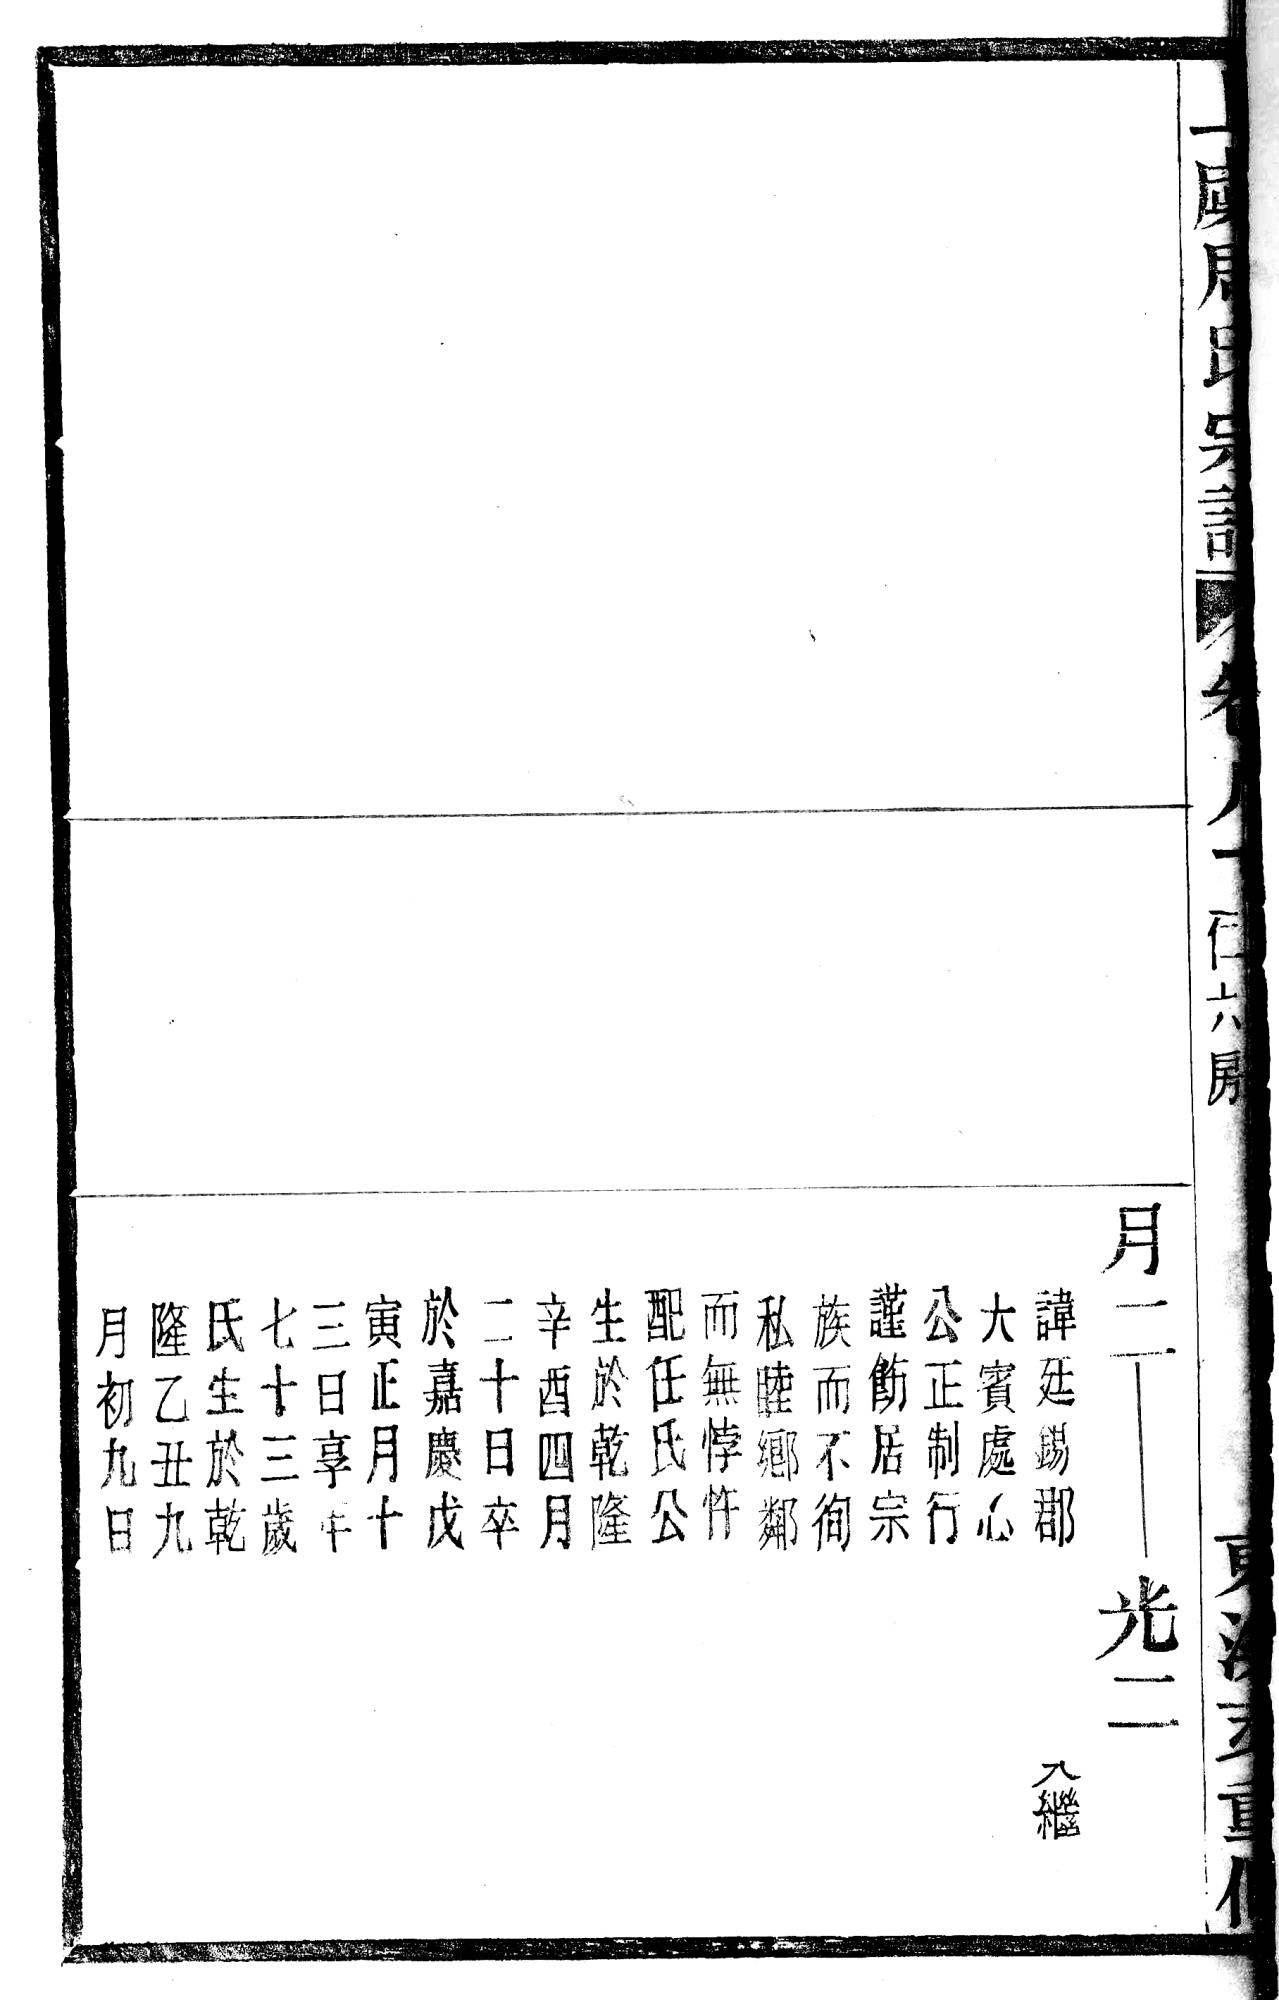 虞周氏宗譜
卷八
仁六房
重修
月二
光二
諱廷錫郡
大賓處心
公正制行
謹飭居宗
族而不徇
私睦鄉鄰
而無悖忤
配任氏公
生於乾隆
辛酉四月
二十日卒
於嘉慶戊
寅正月十
三日享年
七十三歲
氏生於乾
隆乙丑九
月初九日
入繼